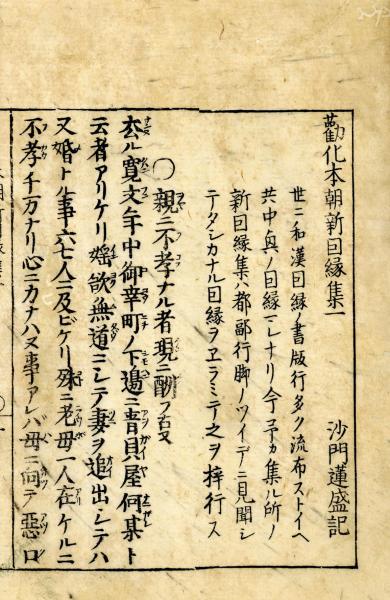 勸化本朝新因縁集一
沙門蓮盛記
世ニ和漢因縁ノ書版行多ク流布ストイヘ
共中眞ノ因縁マレナリ今予カ集ル所ノ
新因縁集ハ都鄙行脚ノツイデニ見聞シ
テタシカナル因縁ヲヱラミテ之ヲ梓行ス
○親ニ不孝ナル者現ニ酬フ事
去ル寛文年中御幸町ノ下邉ニ音貝屋何某ト
云者アリケリ婬欲無道ニシテ妻ヲ追出シテハ
又婚トル事六七人ニ及ビケリ殊ニ老母一人在ケルニ
不孝千万ナリ心ニカナハヌ事アレバ母ニ向テ惡口